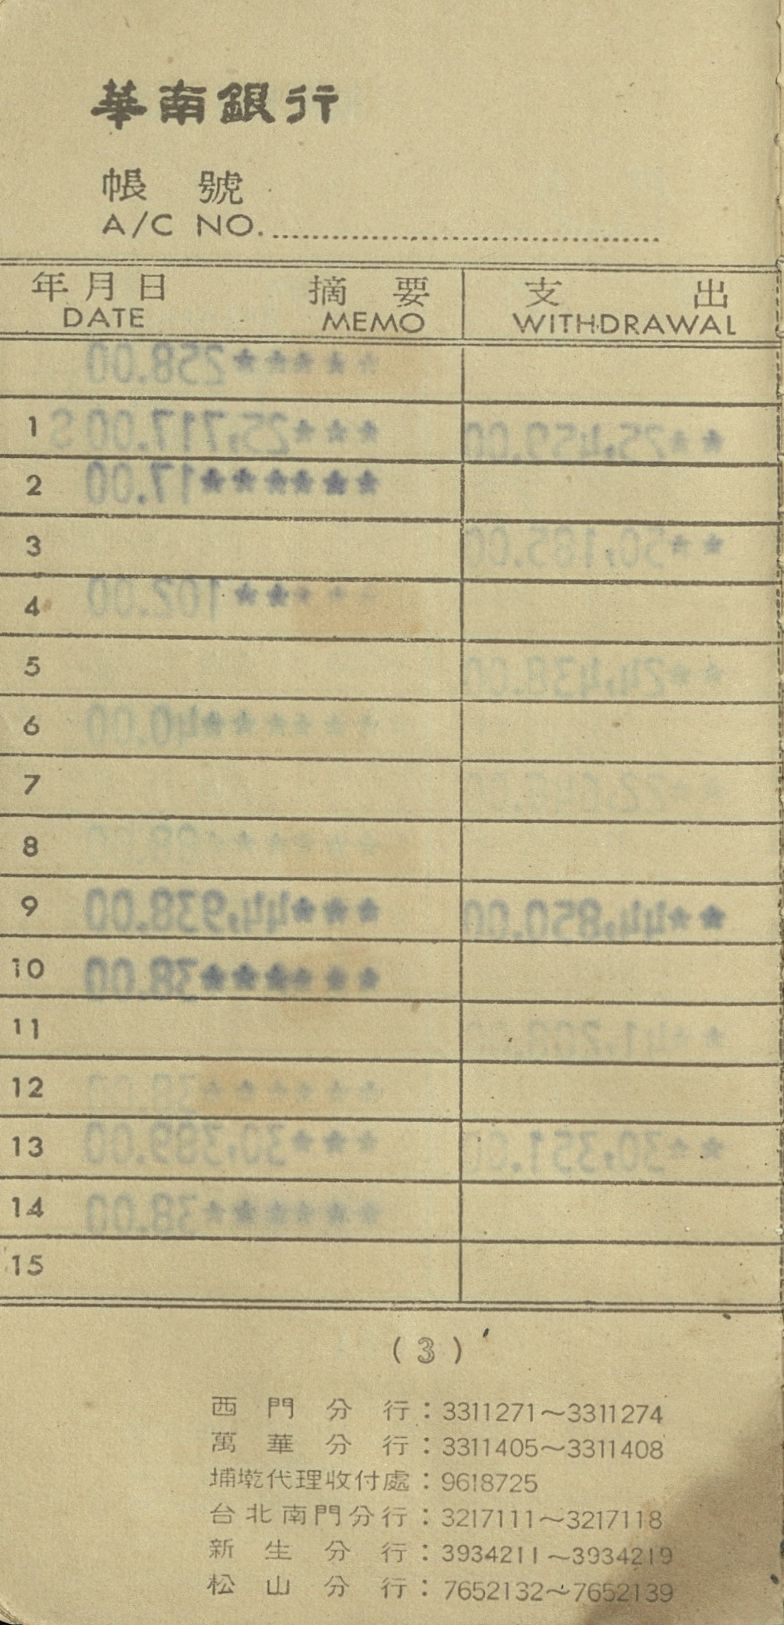 華南銀行
帳號
A/C NO.
年月日 摘要 支出
DATE MEMO WITHDRAWAL
1
2
3
4
5
6
7
8
9
10
11
12
13
14
15
(3)
西門分行：3311271～3311274
萬華分行：3311405～3311408
埔墘代理收付處：9618725
台北南門分行：3217111～3217118
新生分行：3934211～3934219
松山分行：7652132～7652139